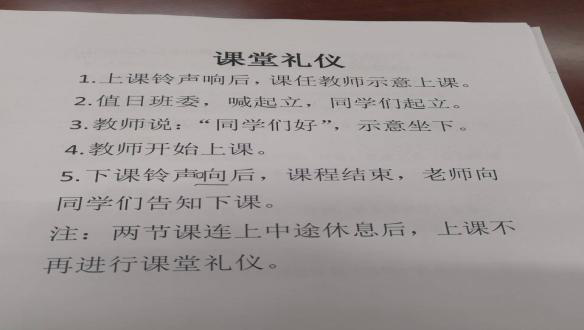 课堂礼仪
1.上课铃声响后，课任教师示意上课。
2.值日班委，喊起立，同学们起立。
3.教师说：“同学们好”，示意坐下。
4.教师开始上课。
5.下课铃声向后，课程结束，老师向
同学们告知下课。
注：两节课连上中途休息后，上课不
再进行课堂礼仪。